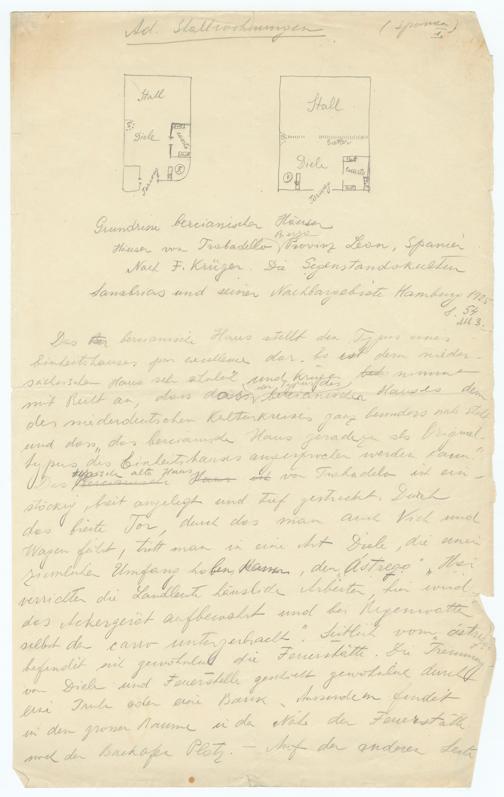 Ad. Stallwohnungen (Spanien
1.
Stall Stall
Diele
Diele
Grundrisse bercianischer Häuser
Häuser von Trabadello, Provinz Leon, Spanien
Nach F. Krüger. Die Gegenstandskultur
Sanabrias und seiner Nachbargebiete Hamburg 1925
S. 54
Das bercianische Haus stellt den Typus eines
Einheitshauses par excellence dar. Es ist dem nieder-
sächsischen Haus sehr ähnlich und Krüger nimmt
mit Recht an, dass der Typus des bercianischen Hauses dem
des niederdeutschen Kulturkreises ganz besonders nahe steht
und dass "das bercianische Haus geradezu als Original-
typus des Einheitshauses angesprochen werden kann."
Das alte Haus von Trabadelo ist ein-
stöckig, breit angelegt und tief gestreckt. Durch
das breite Tor, durch das man auch Vieh und
Wagen führt, tritt man in eine Art Diele, die einen
ziemlichen Umfang haben kann, den "Astrego". "Hier
verrichten die Landleute häusliche Arbeiten, hier wird
das Ackergerät aufbewahrt und bei Regenwetter
selbst der carro untergebracht". Seitlich vom
befindet sich gewöhnlich die Feuerstätte. Die Trennung
von Diele und Feuerstelle geschieht gewöhnlich durch
eine Truhe oder eine Bank. Ausserdem findet
in dem grossen Raume in der Nähe der Feuerstätte
noch der Backofen Platz. — Auf der anderen Seite